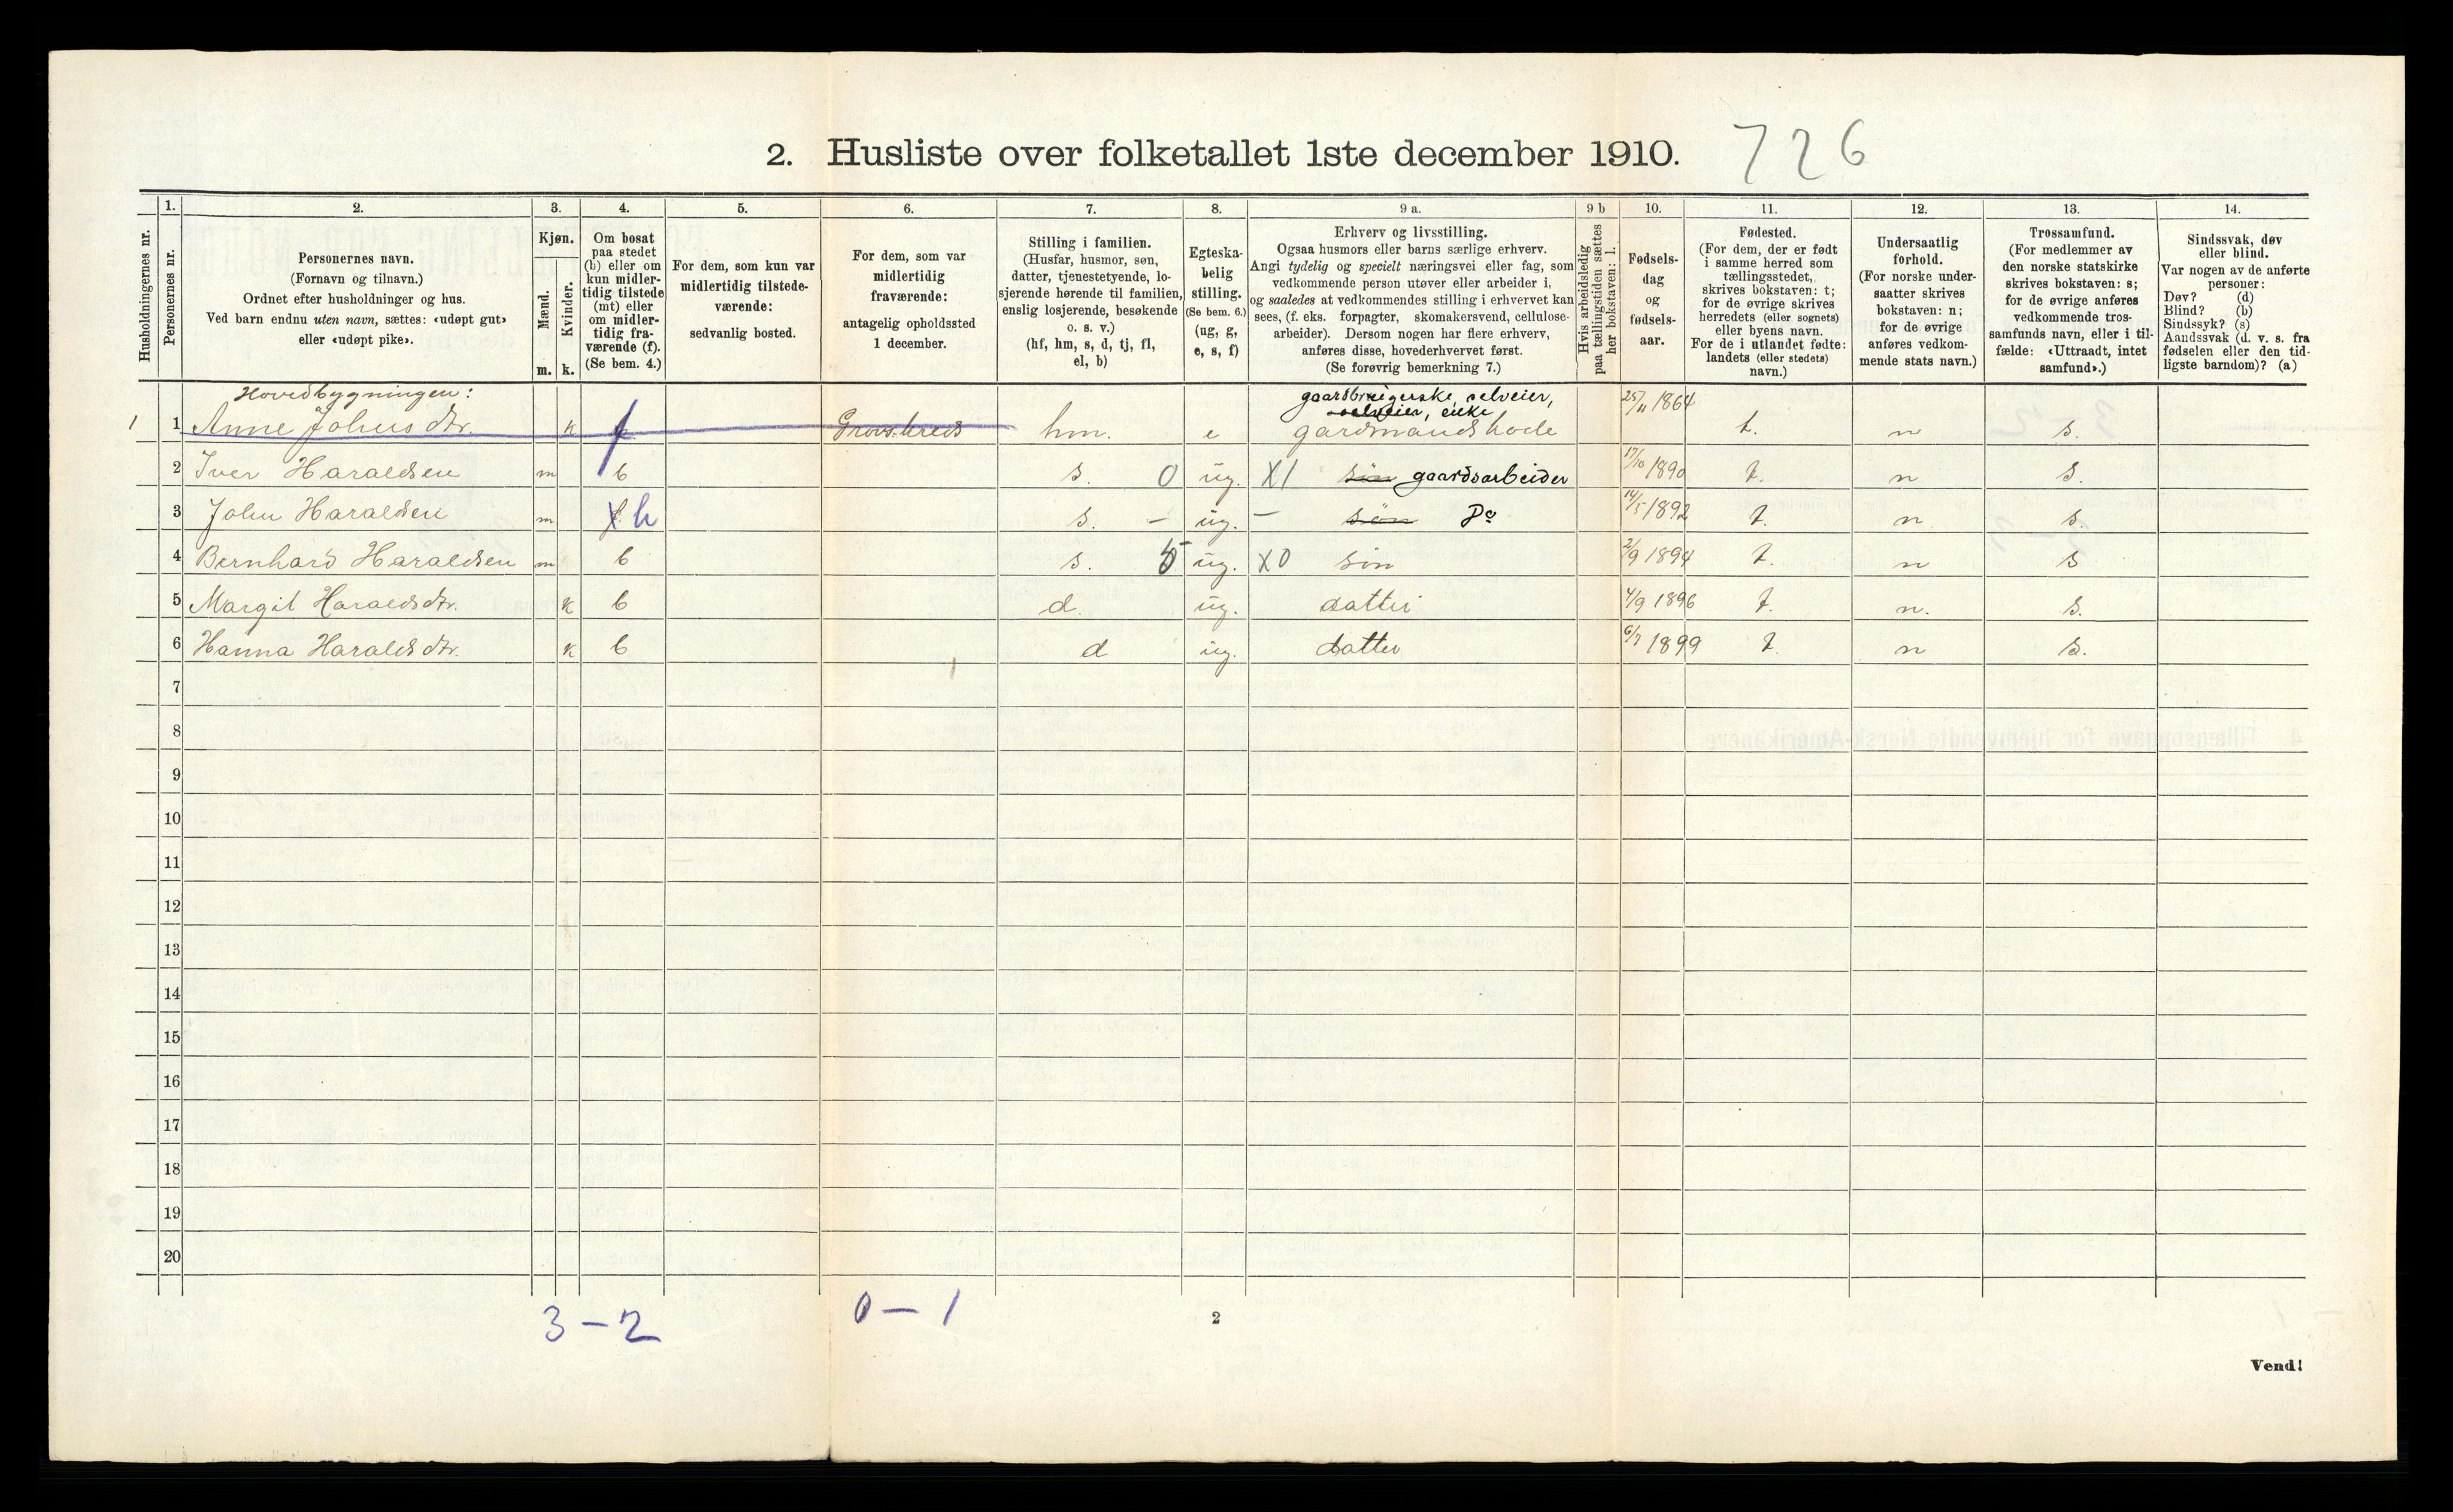 2. Husliste over folketallet 1ste december 1910. 726
Husholdningernes nr.
1.
Personernes nr.
2.
Personernes navn.
(Fornavn og tilnavn.)
Ordnet efter husholdninger og hus.
Ved barn endnu uten navn, sættes: «udøpt gut»
eller «udøpt pike».
3.
Kjøn.
Mænd.
Kvinder.
m. k.
4.
Om bosat
paa stedet
(b) eller om
kun midler-
tidig tilstede
(mt) eller
om midler-
tidig fra-
værende (f).
(Se bem. 4.)
5.
For dem, som kun var
midlertidig tilstede-
værende:
sedvanlig bosted.
6.
For dem, som var
midlertidig
fraværende:
antagelig opholdssted
1 december.
7.
Stilling i familien.
(Husfar, husmor, søn,
datter, tjenestetyende, lo-
sjerende hørende til familien,
enslig losjerende, besøkende
o. s. v.)
(hf, hm, s, d, tj, fl,
el, b)
8.
Egteska-
belig
stilling.
(Se bem. 6.)
(ug, g,
e, s, f)
9 a.
Erhverv og livsstilling.
Ogsaa husmors eller barns særlige erhverv.
Angi tydelig og specielt næringsvei eller fag, som
vedkommende person utøver eller arbeider i,
og saaledes at vedkommendes stilling i erhvervet kan
sees, (f. eks. forpagter, skomakersvend, cellulose-
arbeider). Dersom nogen har flere erhverv,
anføres disse, hovederhvervet først.
(Se forøvrig bemerkning 7.)
9 b
Hvis arbeidsledig
paa tællingstiden sættes
her bokstaven: l.
10.
Fødsels-
dag
og
fødsels-
aar.
11.
Fødested.
(For dem, der er født
i samme herred som
tællingsstedet,
skrives bokstaven: t;
for de øvrige skrives
herredets (eller sognets)
eller byens navn.
For de i utlandet fødte:
landets (eller stedets)
navn.)
12.
Undersaatlig
forhold.
(For norske under-
saatter skrives
bokstaven: n;
for de øvrige
anføres vedkom-
mende stats navn.)
13.
Trossamfund.
(For medlemmer av
den norske statskirke
skrives bokstaven: s;
for de øvrige anføres
vedkommende tros-
samfunds navn, eller i til-
fælde: «Uttraadt, intet
samfund».)
14.
Sindssvak, døv
eller blind.
Var nogen av de anførte
personer:
Døv? (d)
Blind? (b)
Sindssyk? (s)
Aandssvak (d. v. s. fra
fødselen eller den tid-
ligste barndom)? (a)
Hovedbygningen:
gaardbrugerske, selveier,
selveier, enke
1 1 Anne Johnsdtr. k f hm. e gardmandskode 25/11 1864 t. n s.
2 Iver Haraldsen m b s. 0 ug. X1 søn gaardsarbeider 17/10 1890 t. n s.
3 John Haraldsen m f h s. - ug. - søn Do 14/5 1892 t. n s.
4 Bernhard Haraldsen m b s. 5 ug. X0 søn 2/9 1894 t. n s
5 Margit Haraldsdtr. k b d. ug. datter 4/9 1896 t. n. s.
6 Hanna Haraldsdtr. k b d ug. datter 6/7 1899 t. n s.
7
8
9
10
11
12
13
14
15
16
17
18
19
20
3 - 2 0 - 1
2
Vend!